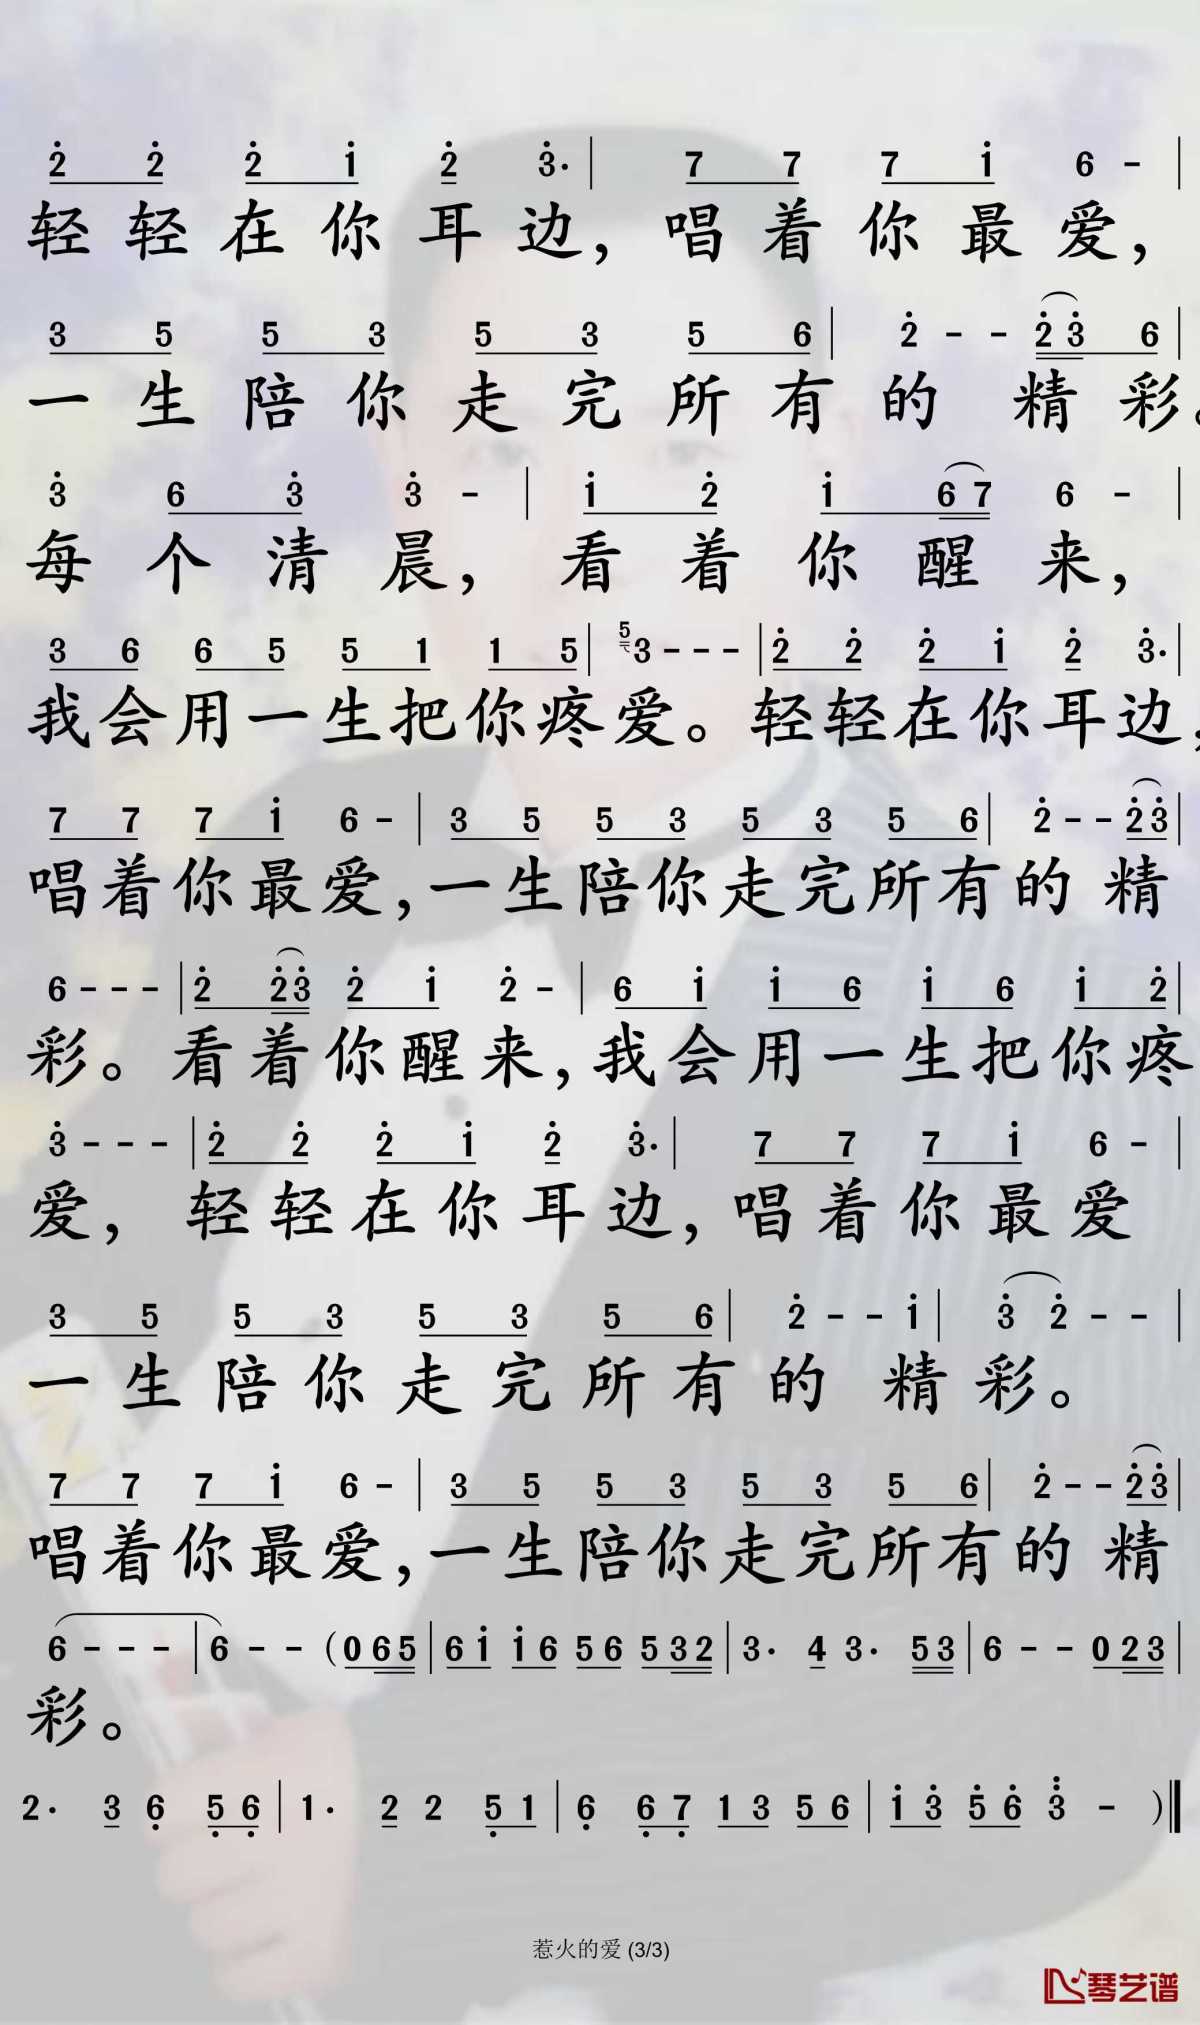 2 2 2 1 2 3· | 7 7 7 1 6 - |
轻轻在你耳边，唱着你最爱，
3 5 5 3 5 3 5 6 | 2 - - 2 3 6 |
一生陪你走完所有的精彩。
3 6 3 3 - | 1 2 1 6 7 6 - |
每个清晨，看着你醒来，
3 6 6 5 5 1 1 5 | 5 3 - - - | 2 2 2 1 2 3· |
我会用一生把你疼爱。轻轻在你耳边，
7 7 7 1 6 - | 3 5 5 3 5 3 5 6 | 2 - - 2 3 |
唱着你最爱，一生陪你走完所有的精
6 - - - | 2 2 3 2 1 2 - | 6 1 1 6 1 6 1 2 |
彩。看着你醒来，我会用一生把你疼
3 - - - | 2 2 2 1 2 3· | 7 7 7 1 6 - |
爱，轻轻在你耳边，唱着你最爱
3 5 5 3 5 3 5 6 | 2 - - 1 | 3 2 - - |
一生陪你走完所有的精彩。
7 7 7 1 6 - | 3 5 5 3 5 3 5 6 | 2 - - 2 3 |
唱着你最爱，一生陪你走完所有的精
6 - - - | 6 - - (0 6 5 | 6 1 1 6 5 6 5 3 2 | 3· 4 3· 5 3 | 6 - - 0 2 3 |
彩。
2· 3 6 5 6 | 1· 2 2 5 1 | 6 6 7 1 3 5 6 | 1 3 5 6 3 - )‖
惹火的爱 (3/3)
琴艺谱